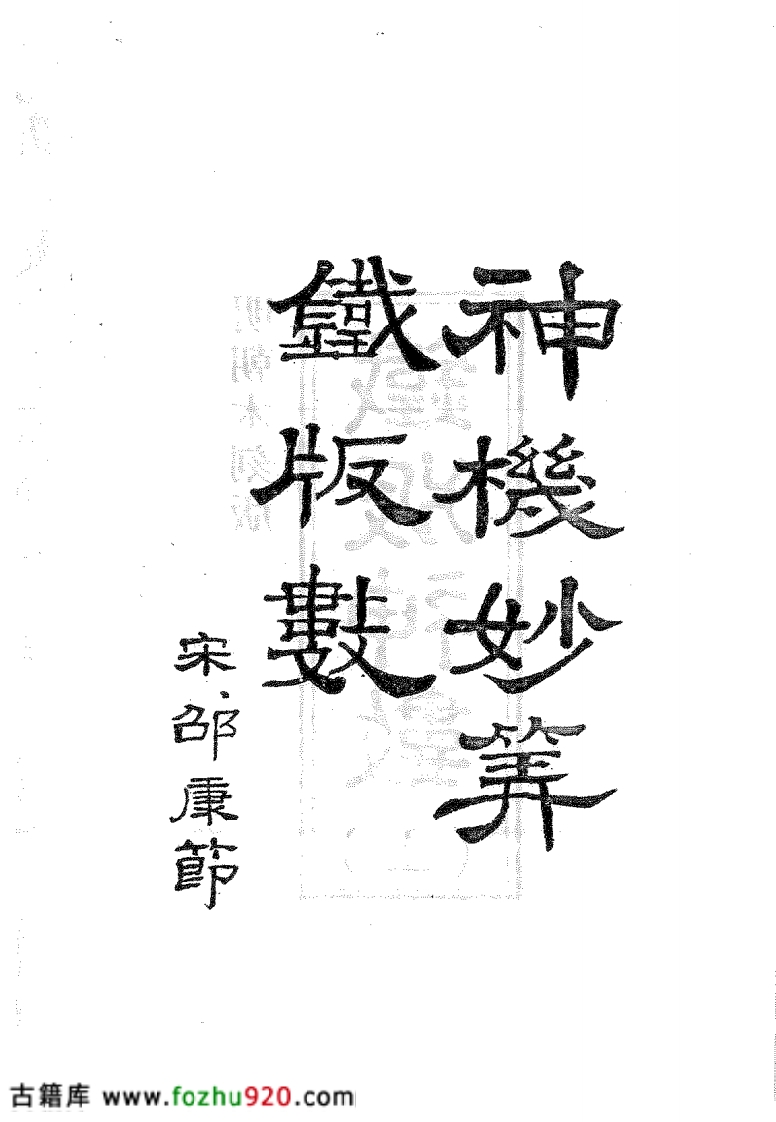 神機妙筭
鐵版數
宋、邵康節
古籍库 www.fozhu920.com